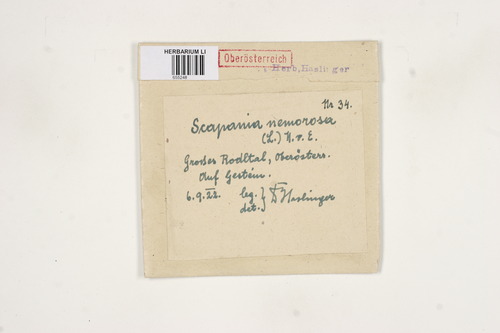 HERBARIUM LI
Oberösterreich
Herb. Haslinger
Nr 34.
Scapania nemorosa
(L.) N. v. E.
Großes Rodltal, Oberösterr.
Auf Gestein.
6.9.22. leg. } Haslinger
det. }